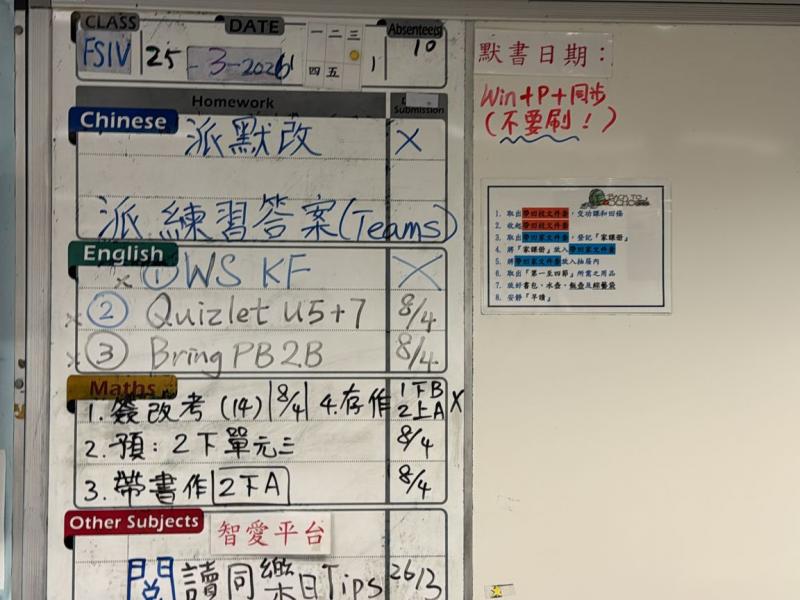 CLASS DATE Absentee(s)
FSIV 25 - 3 - 2026 一 二 三 四 五 10
Homework Submission
Chinese 派默改 X
派練習答案(Teams)
English ① WS KF X
x ② Quizlet U5+7 8/4
x ③ Bring PB 2B 8/4
Maths
1. 簽改考 (14) 8/4 4. 存作 1下B 2上A X
2. 預: 2下單元三 8/4
3. 帶書作 2下A 8/4
Other Subjects 智愛平台
閱讀同樂日Tips 26/3
默書日期:
Win+P+同步
(不要刷!)
BACK TO SCHOOL
1. 取出帶回校文件套,交功課和回條
2. 收起帶回校文件套
3. 取出帶回家文件套,登記「家課冊」
4. 將「家課冊」放入帶回家文件套
5. 將帶回家文件套放入抽屜內
6. 取出「第一至四節」所需之用品
7. 放好書包、水壺、飯壺及綜藝袋
8. 安靜「早讀」